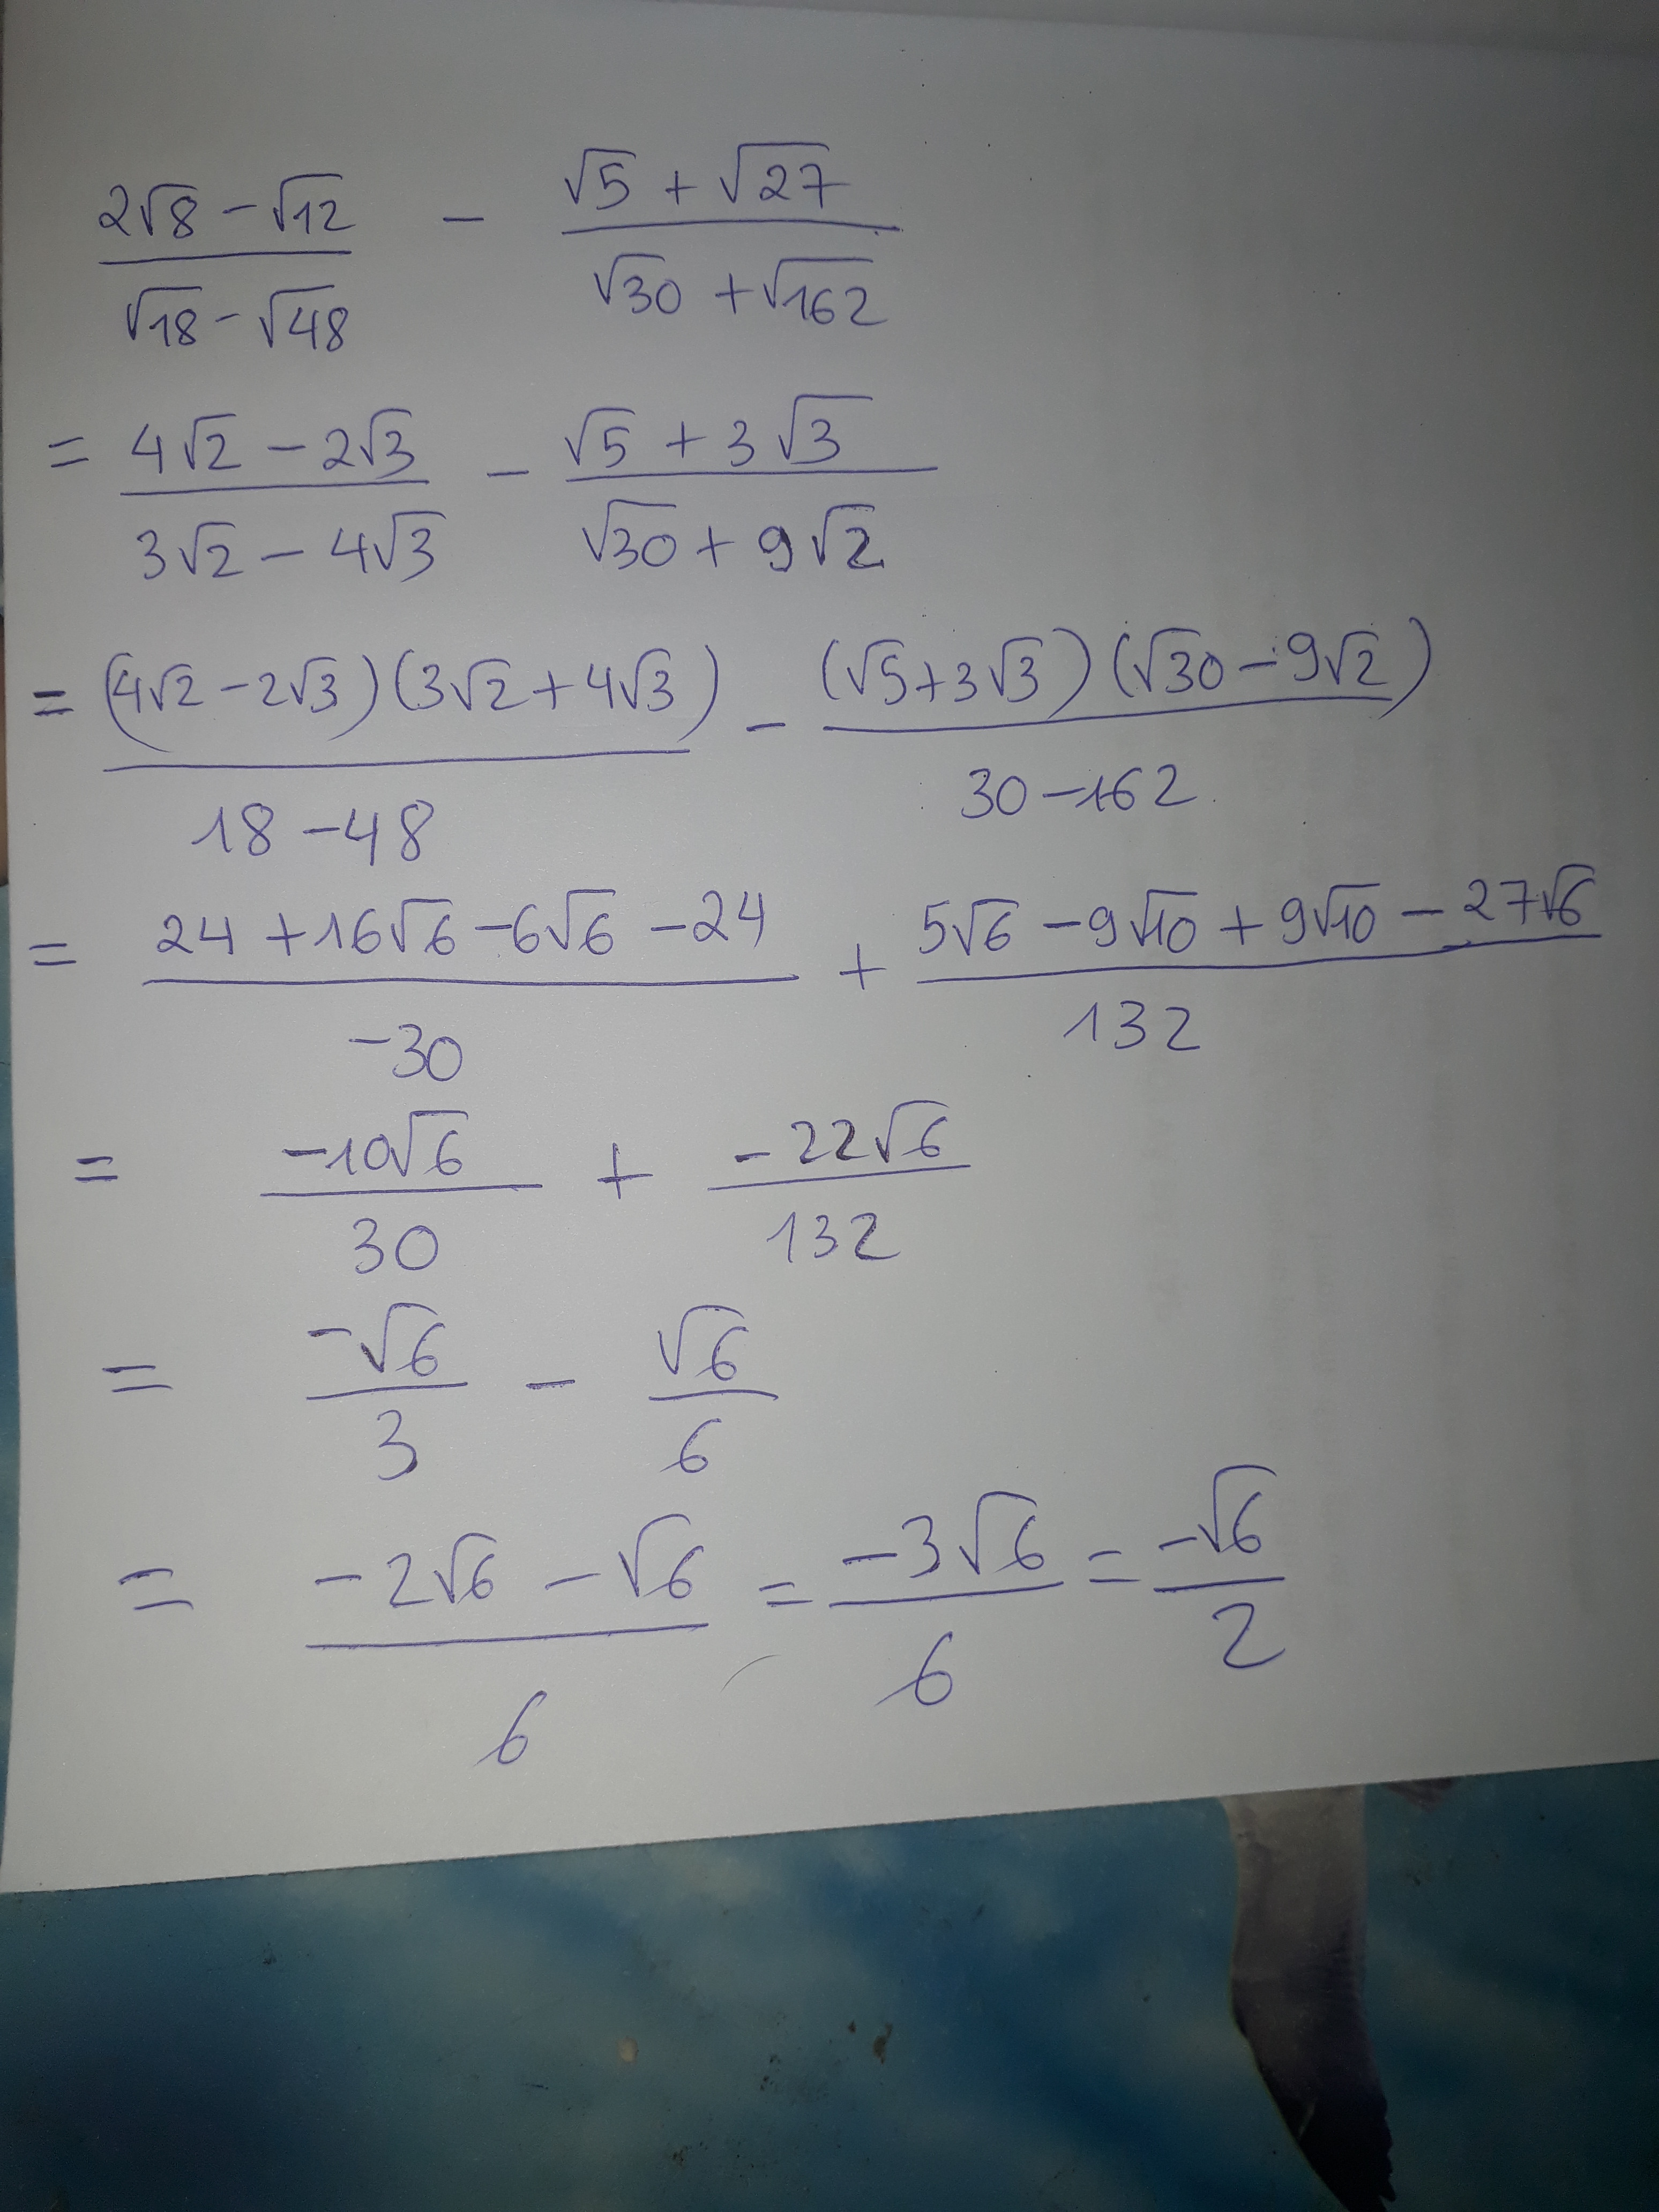 (2√8 - √12)/(√18 - √48) - (√5 + √27)/(√30 + √162)
= (4√2 - 2√3)/(3√2 - 4√3) - (√5 + 3√3)/(√30 + 9√2)
= ((4√2 - 2√3)(3√2 + 4√3))/(18 - 48) - ((√5 + 3√3)(√30 - 9√2))/(30 - 162)
= (24 + 16√6 - 6√6 - 24)/(-30) + (5√6 - 9√10 + 9√10 - 27√6)/132
= (-10√6)/30 + (-22√6)/132
= (-√6)/3 - √6/6
= (-2√6 - √6)/6 = (-3√6)/6 = (-√6)/2